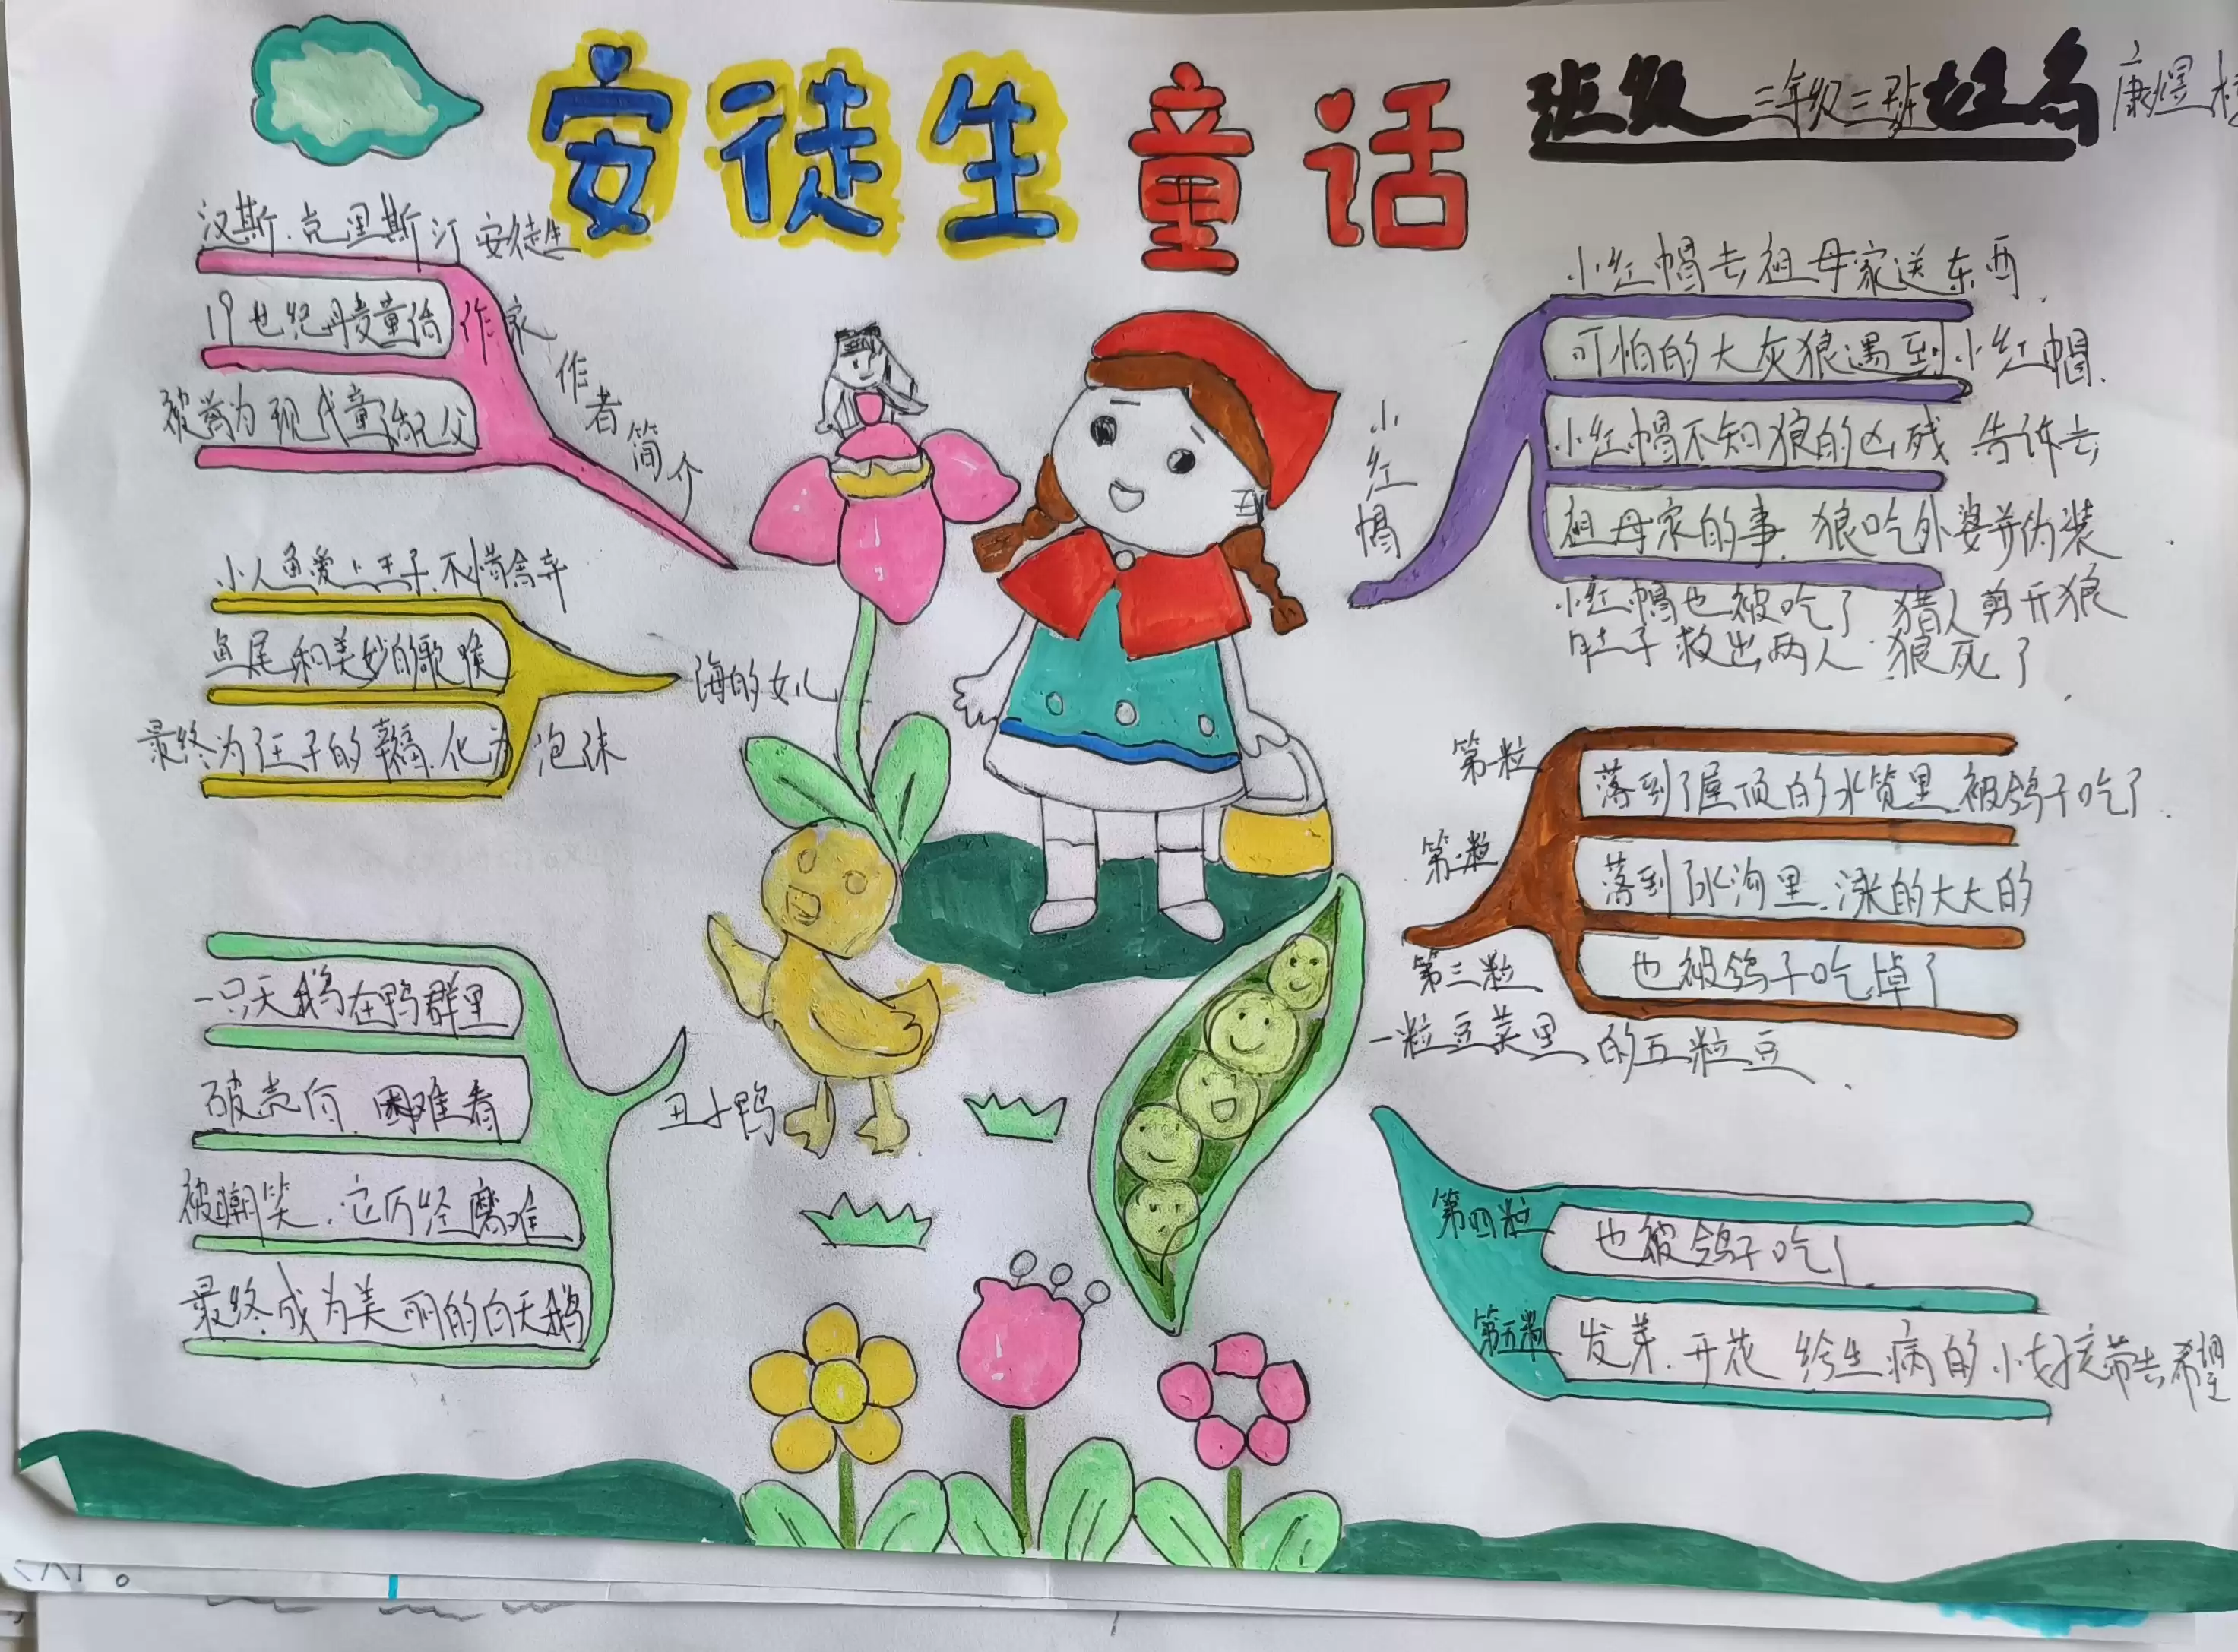 安徒生童话
班级 三年级三班 姓名 康煜
汉斯.克里斯汀安徒生
19世纪丹麦童话作家
被誉为现代童话之父
作者简介
小人鱼爱上王子.不惜舍弃
鱼尾和美妙的歌喉
最终为了王子的幸福.化为泡沫
海的女儿
一只天鹅在鸭群里
破壳后.困难看
被嘲笑.它历经磨难
最终成为美丽的白天鹅
丑小鸭
小红帽去祖母家送东西.
可怕的大灰狼遇到小红帽.
小红帽不知狼的凶残 告诉去
祖母家的事.狼吃外婆并伪装
小红帽也被吃了 猎人剪开狼
肚子救出两人.狼死了
小红帽
第一粒
落到了屋顶的水管里.被鸽子吃了.
第二粒
落到了水沟里.涨的大大的
第三粒
也被鸽子吃掉了
一粒豆荚里的五粒豆.
第四粒
也被鸽子吃了
第五粒
发芽.开花 给生病的小女孩带去希望